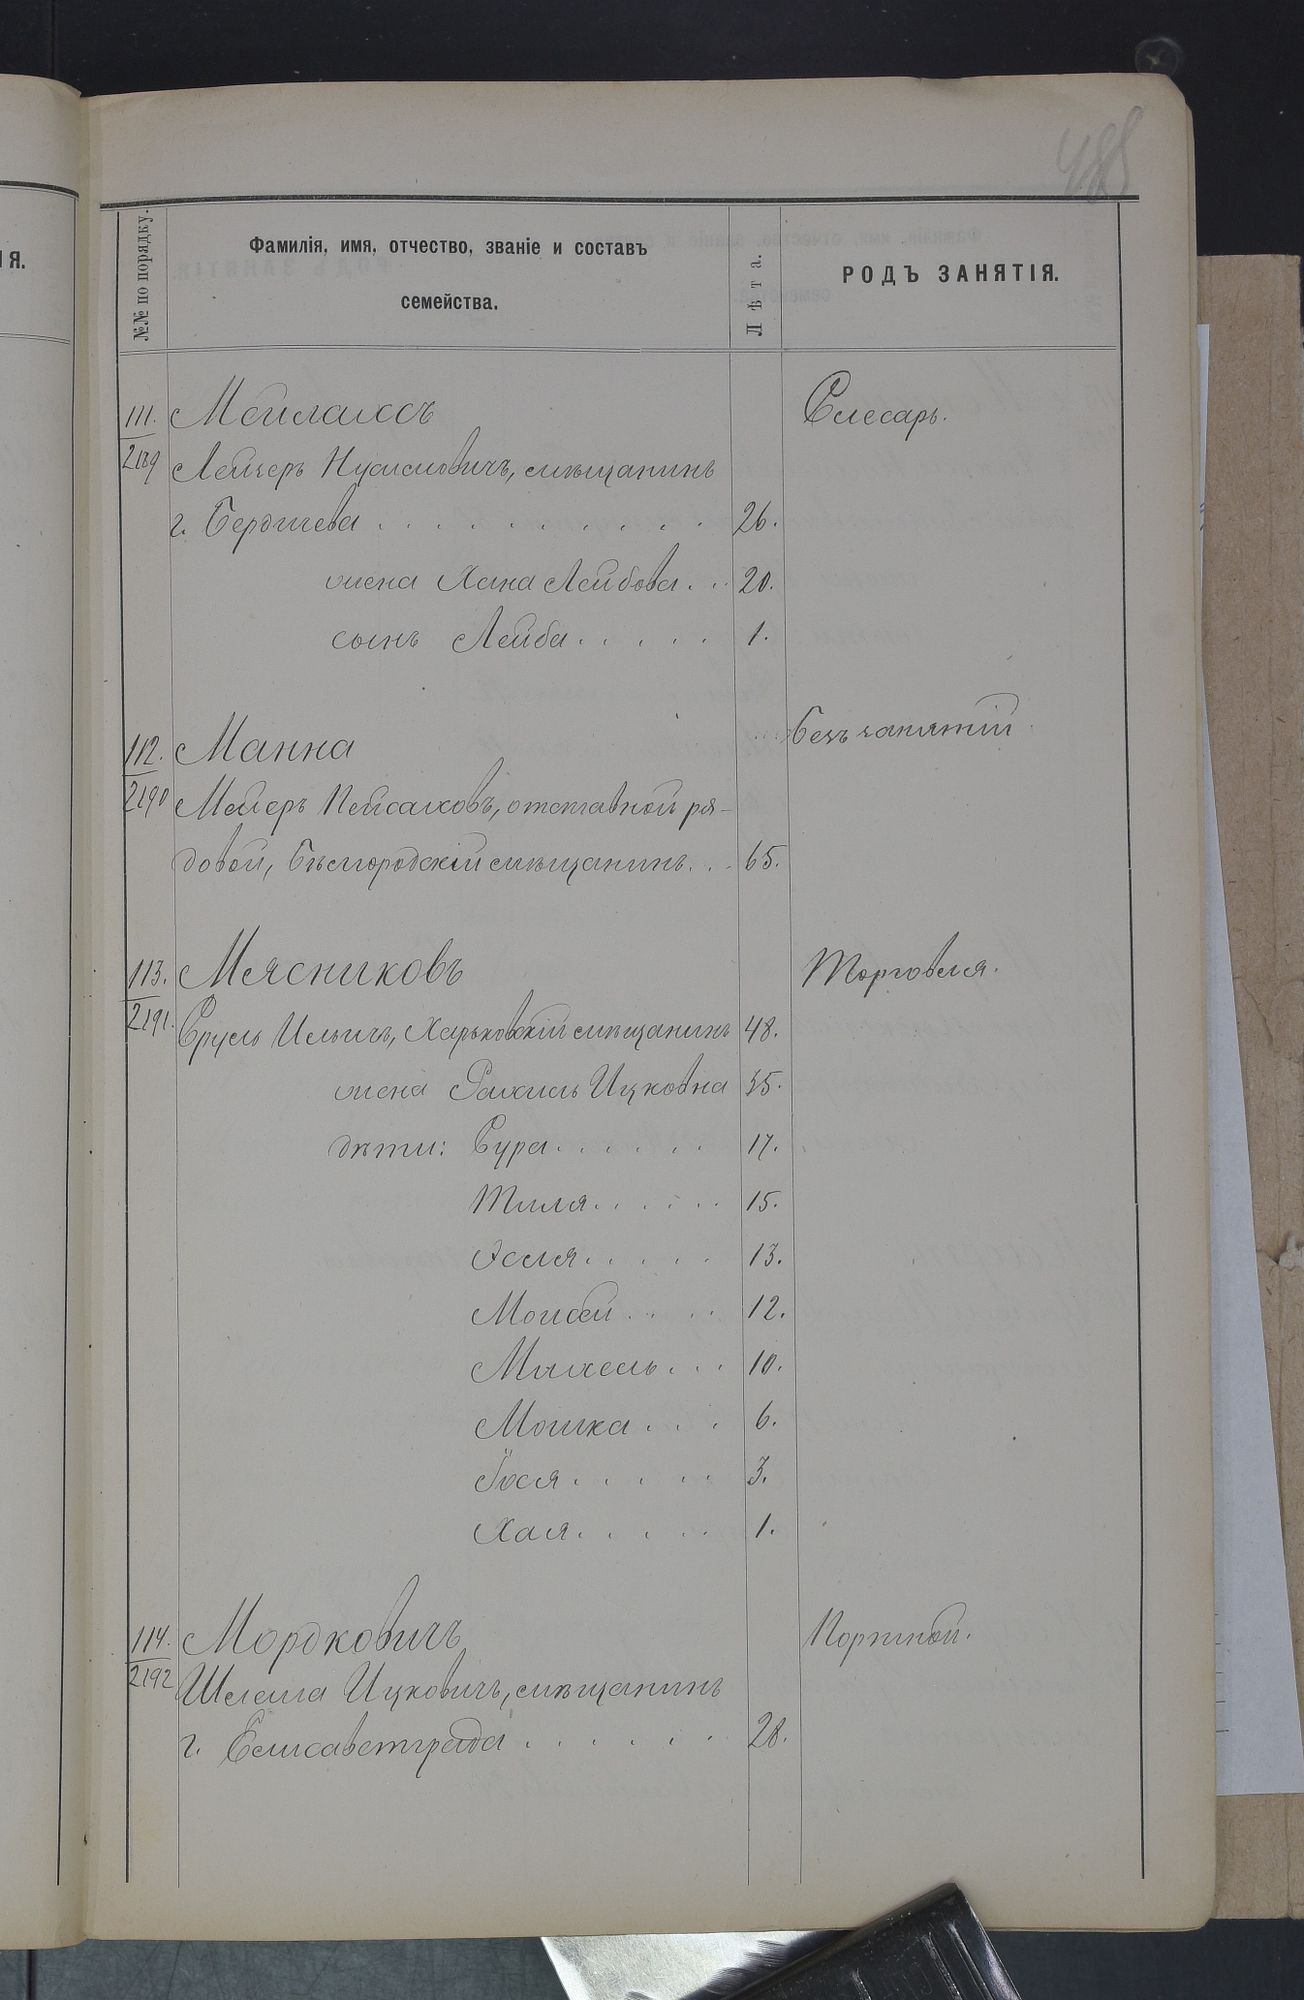 488
ІЯ.
№№ по порядку.
Фамилія, имя, отчество, званіе и составъ
семейства.
Лѣта.
РОДЪ ЗАНЯТІЯ.
111. Мейлахсъ Слесарь.
2189 Лейзеръ Нусимовичъ, мѣщанинъ
г. Бердичева . . . . . . . . . . 26.
жена Хана Лейбова . . 20.
сынъ Лейба . . . . . 1.
112. Манна Безъ занятій
2190 Мейеръ Пейсаховъ, отставной ря-
довой, Бѣлгородскій мѣщанинъ . . 65.
113. Мясниковъ Торговля.
2191. Сруль Ильичъ, Харьковскій мѣщанинъ 48.
жена Рахиль Ицковна 35.
дѣти: Сура . . . . . . 17.
Тиля . . . . . 15.
Эстя . . . . . 13.
Моисей . . . . 12.
Михель . . . 10.
Мошка . . . 6.
Їося . . . . . 3.
Хая . . . . . 1.
114. Мордковичъ Портной.
2192 Шлема Ицковичъ, мѣщанинъ
г. Елисаветграда . . . . . . 28.